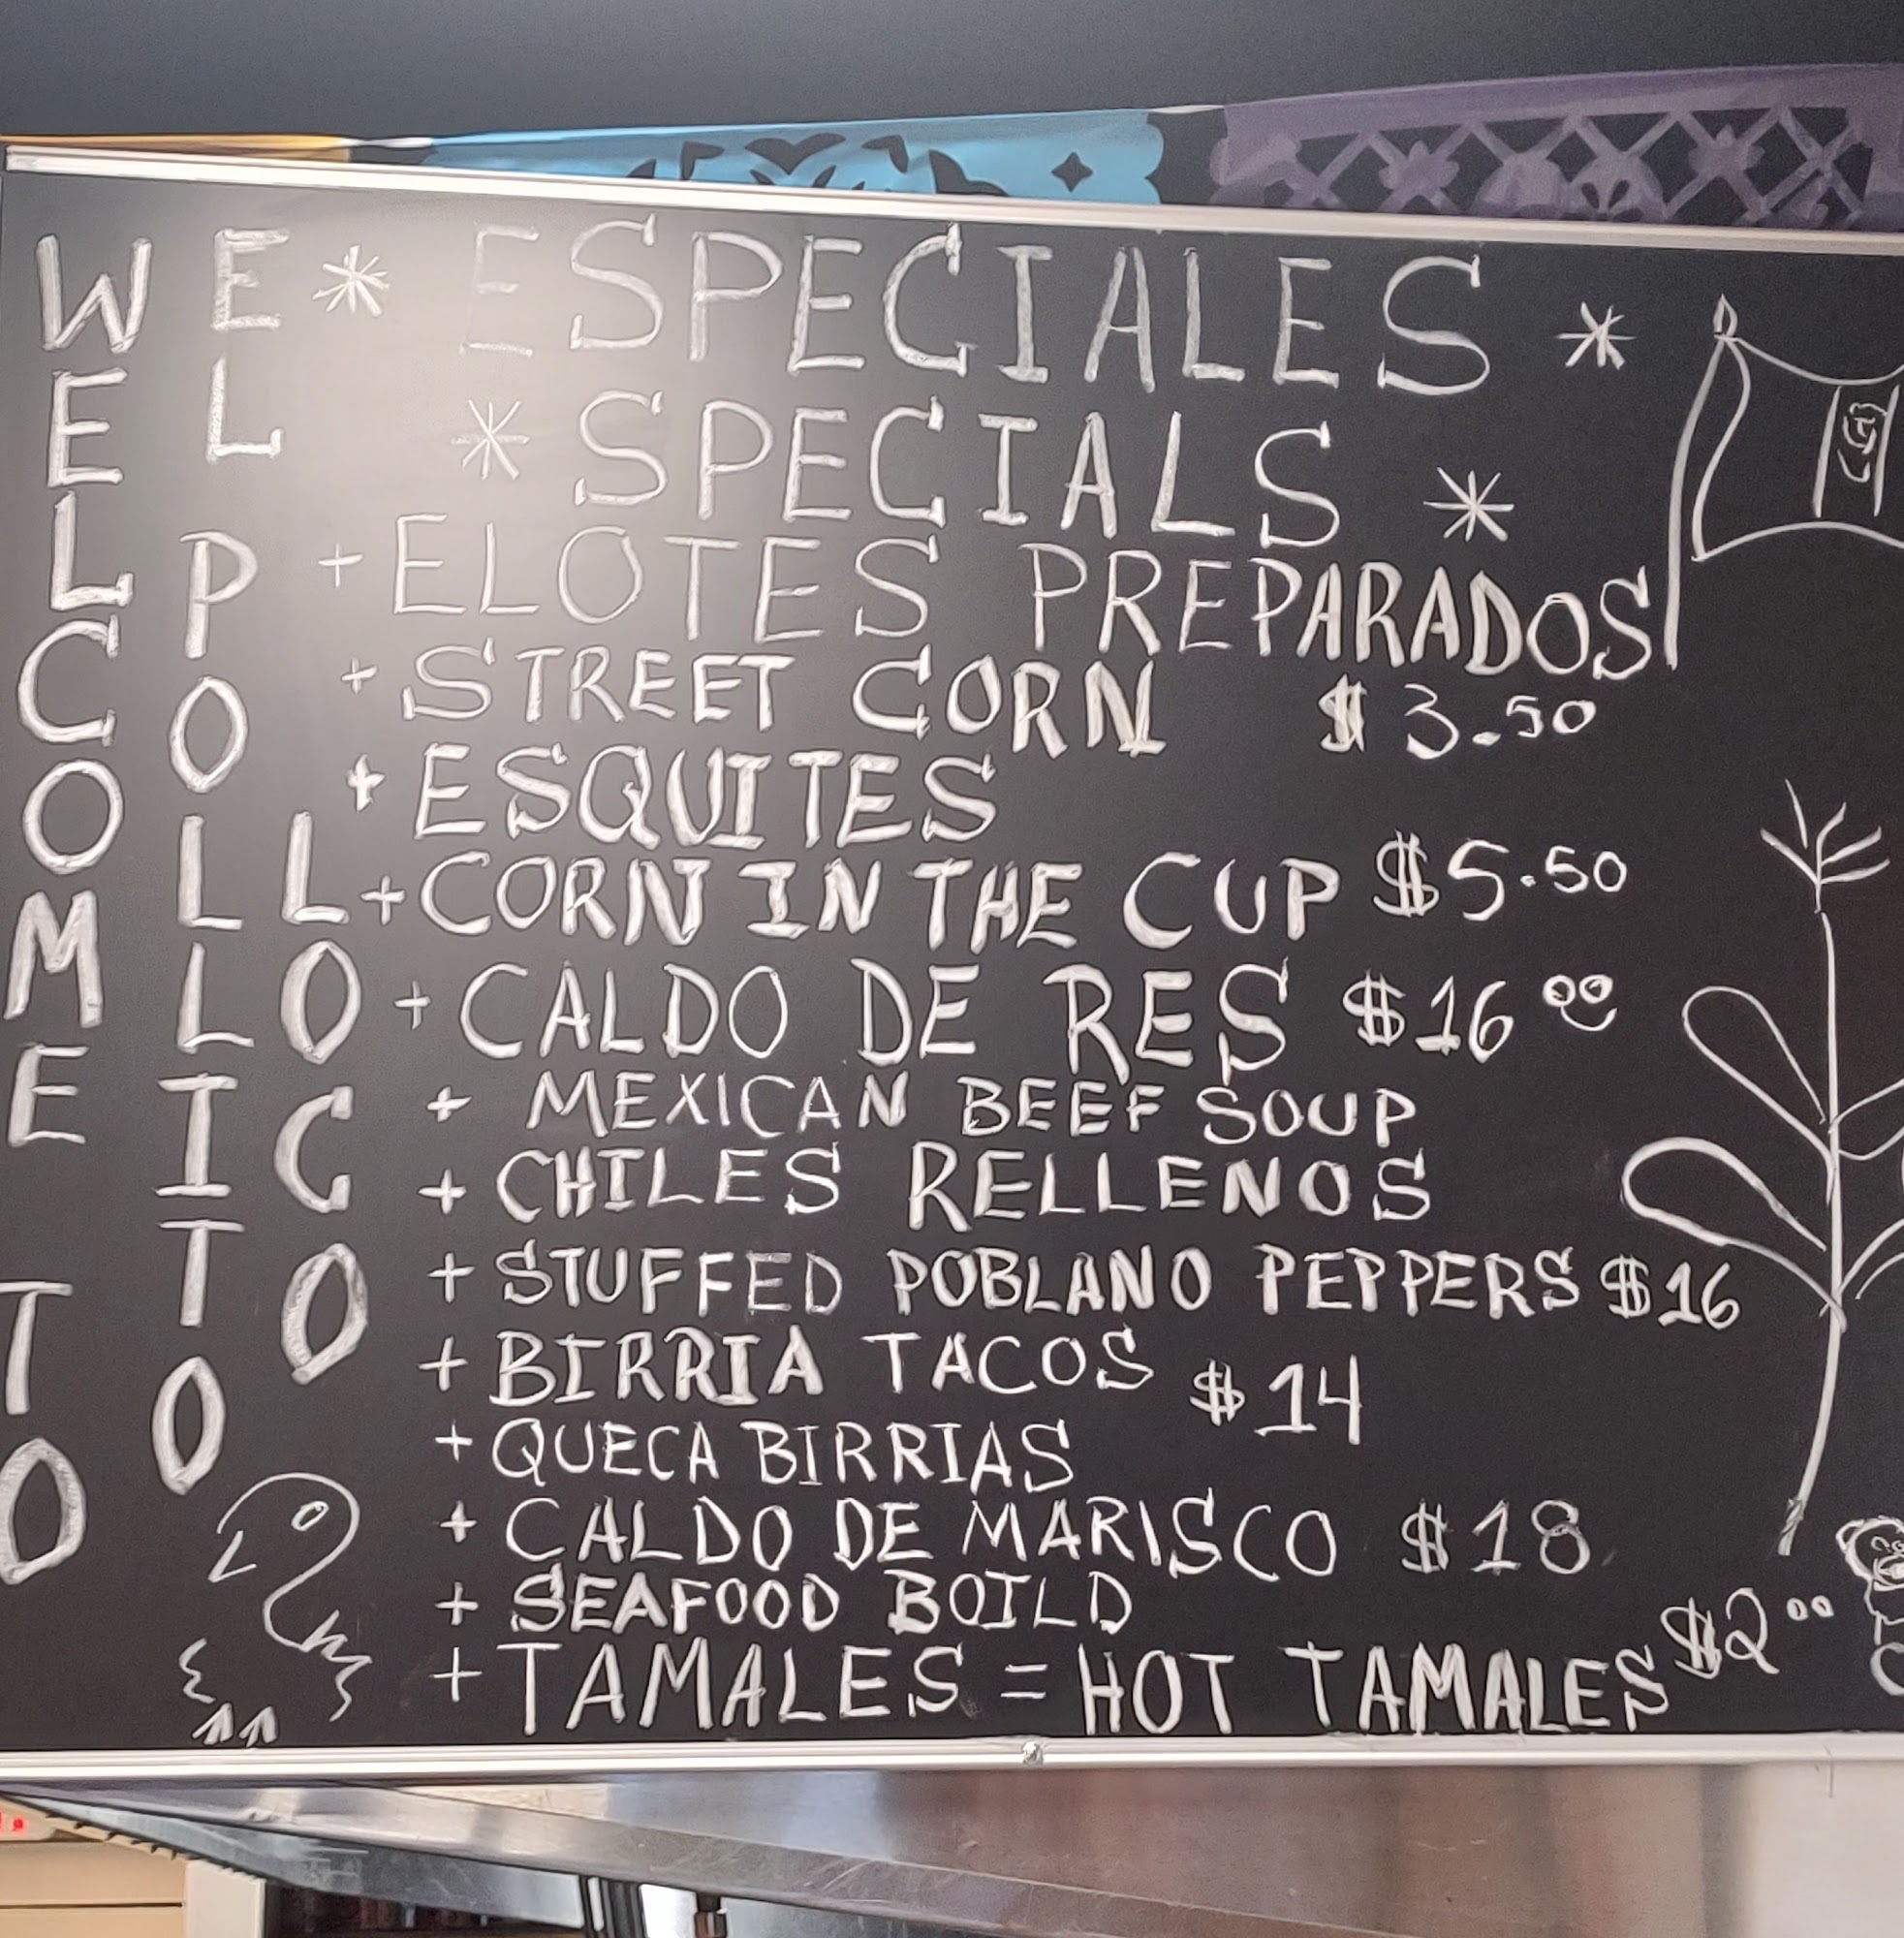 WELCOME TO
EL POLLITO
LOCO
* ESPECIALES *
* SPECIALS *
+ ELOTES PREPARADOS
+ STREET CORN $3.50
+ ESQUITES
+ CORN IN THE CUP $5.50
+ CALDO DE RES $16 00
+ MEXICAN BEEF SOUP
+ CHILES RELLENOS
+ STUFFED POBLANO PEPPERS $16
+ BIRRIA TACOS $14
+ QUECA BIRRIAS
+ CALDO DE MARISCO $18
+ SEAFOOD BOILD
+ TAMALES = HOT TAMALES $2 00